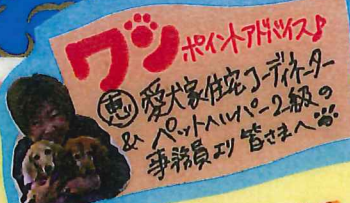 ワンポイントアドバイス♪
恵 愛犬家住宅コーディネーター
& ペットヘルパー2級の
事務員より 皆さまへ